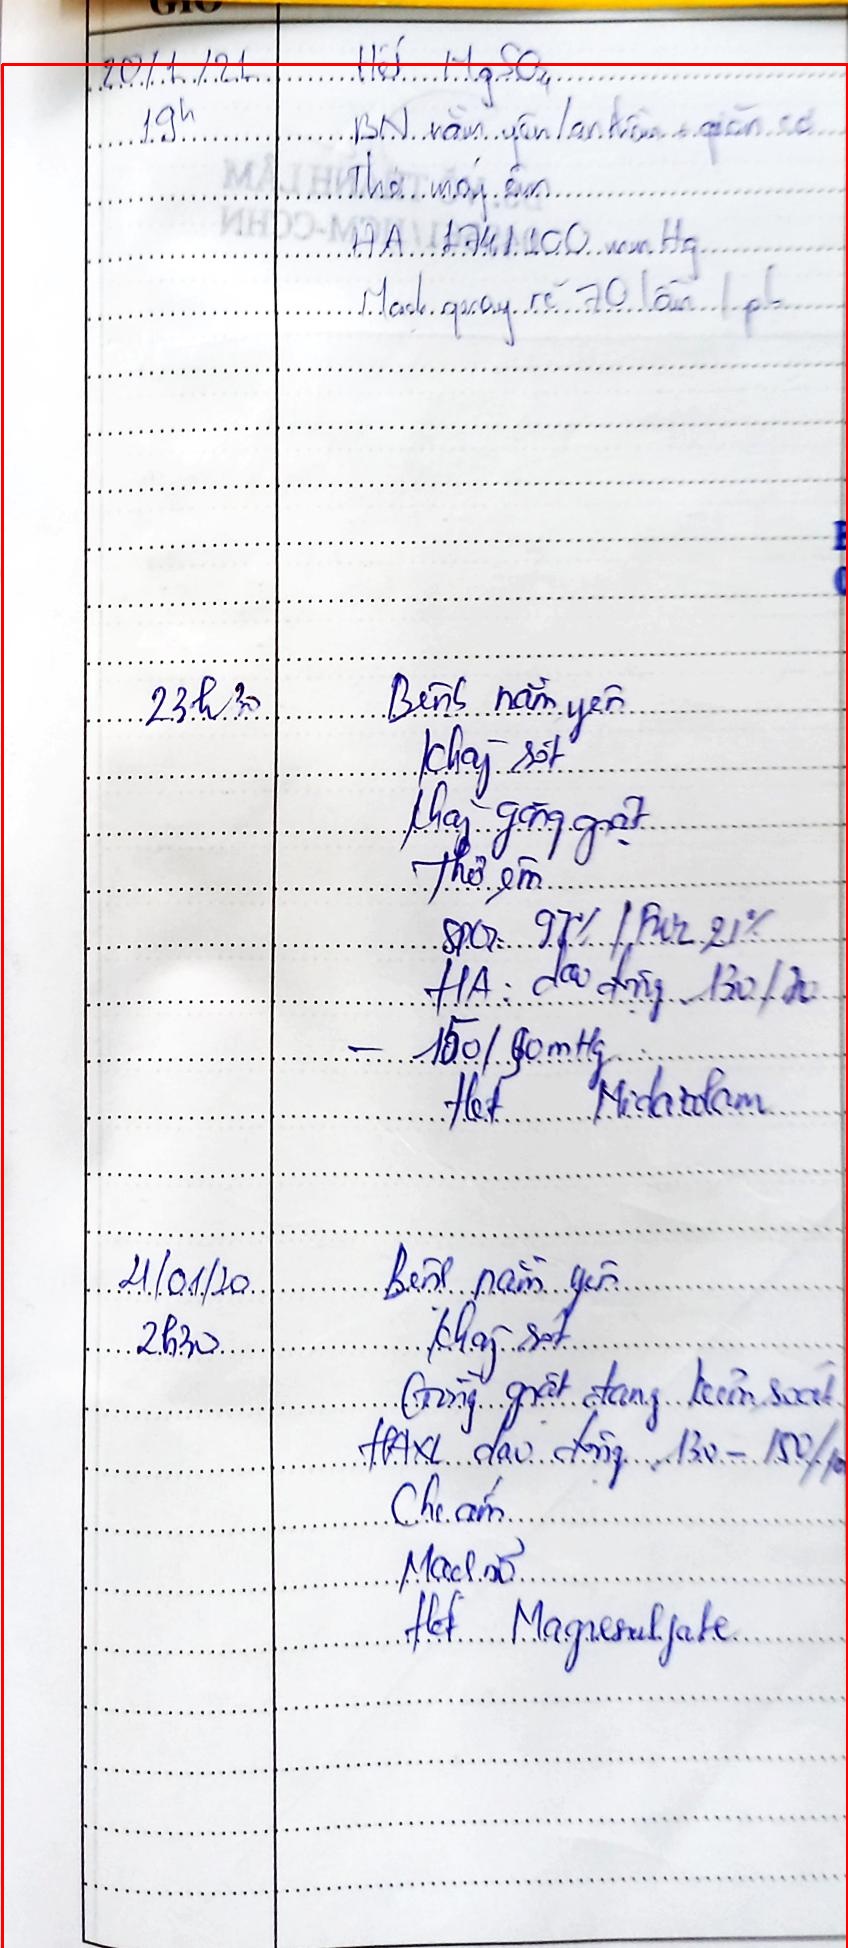 GIỜ
20/1/21 Hết MgSO4
19h BN nằm yên/an thần + giãn cơ
Thở máy êm
HA 174/100 mmHg
Mạch quay rõ 70 lần/ph
23h30 Bệnh nằm yên
Khg sốt
Khg gồng giật
Thở êm
SpO2: 97% / FiO2 21%
HA: dao động 130/
– 150/90mmHg
Hết Midazolam
21/01/20 Bệnh nằm yên
2h30 Khg sốt
Gồng giật đang kiểm soát
HAXL dao động 130 – 150/
Chi ấm
Mạch rõ
Hết Magnesulfate